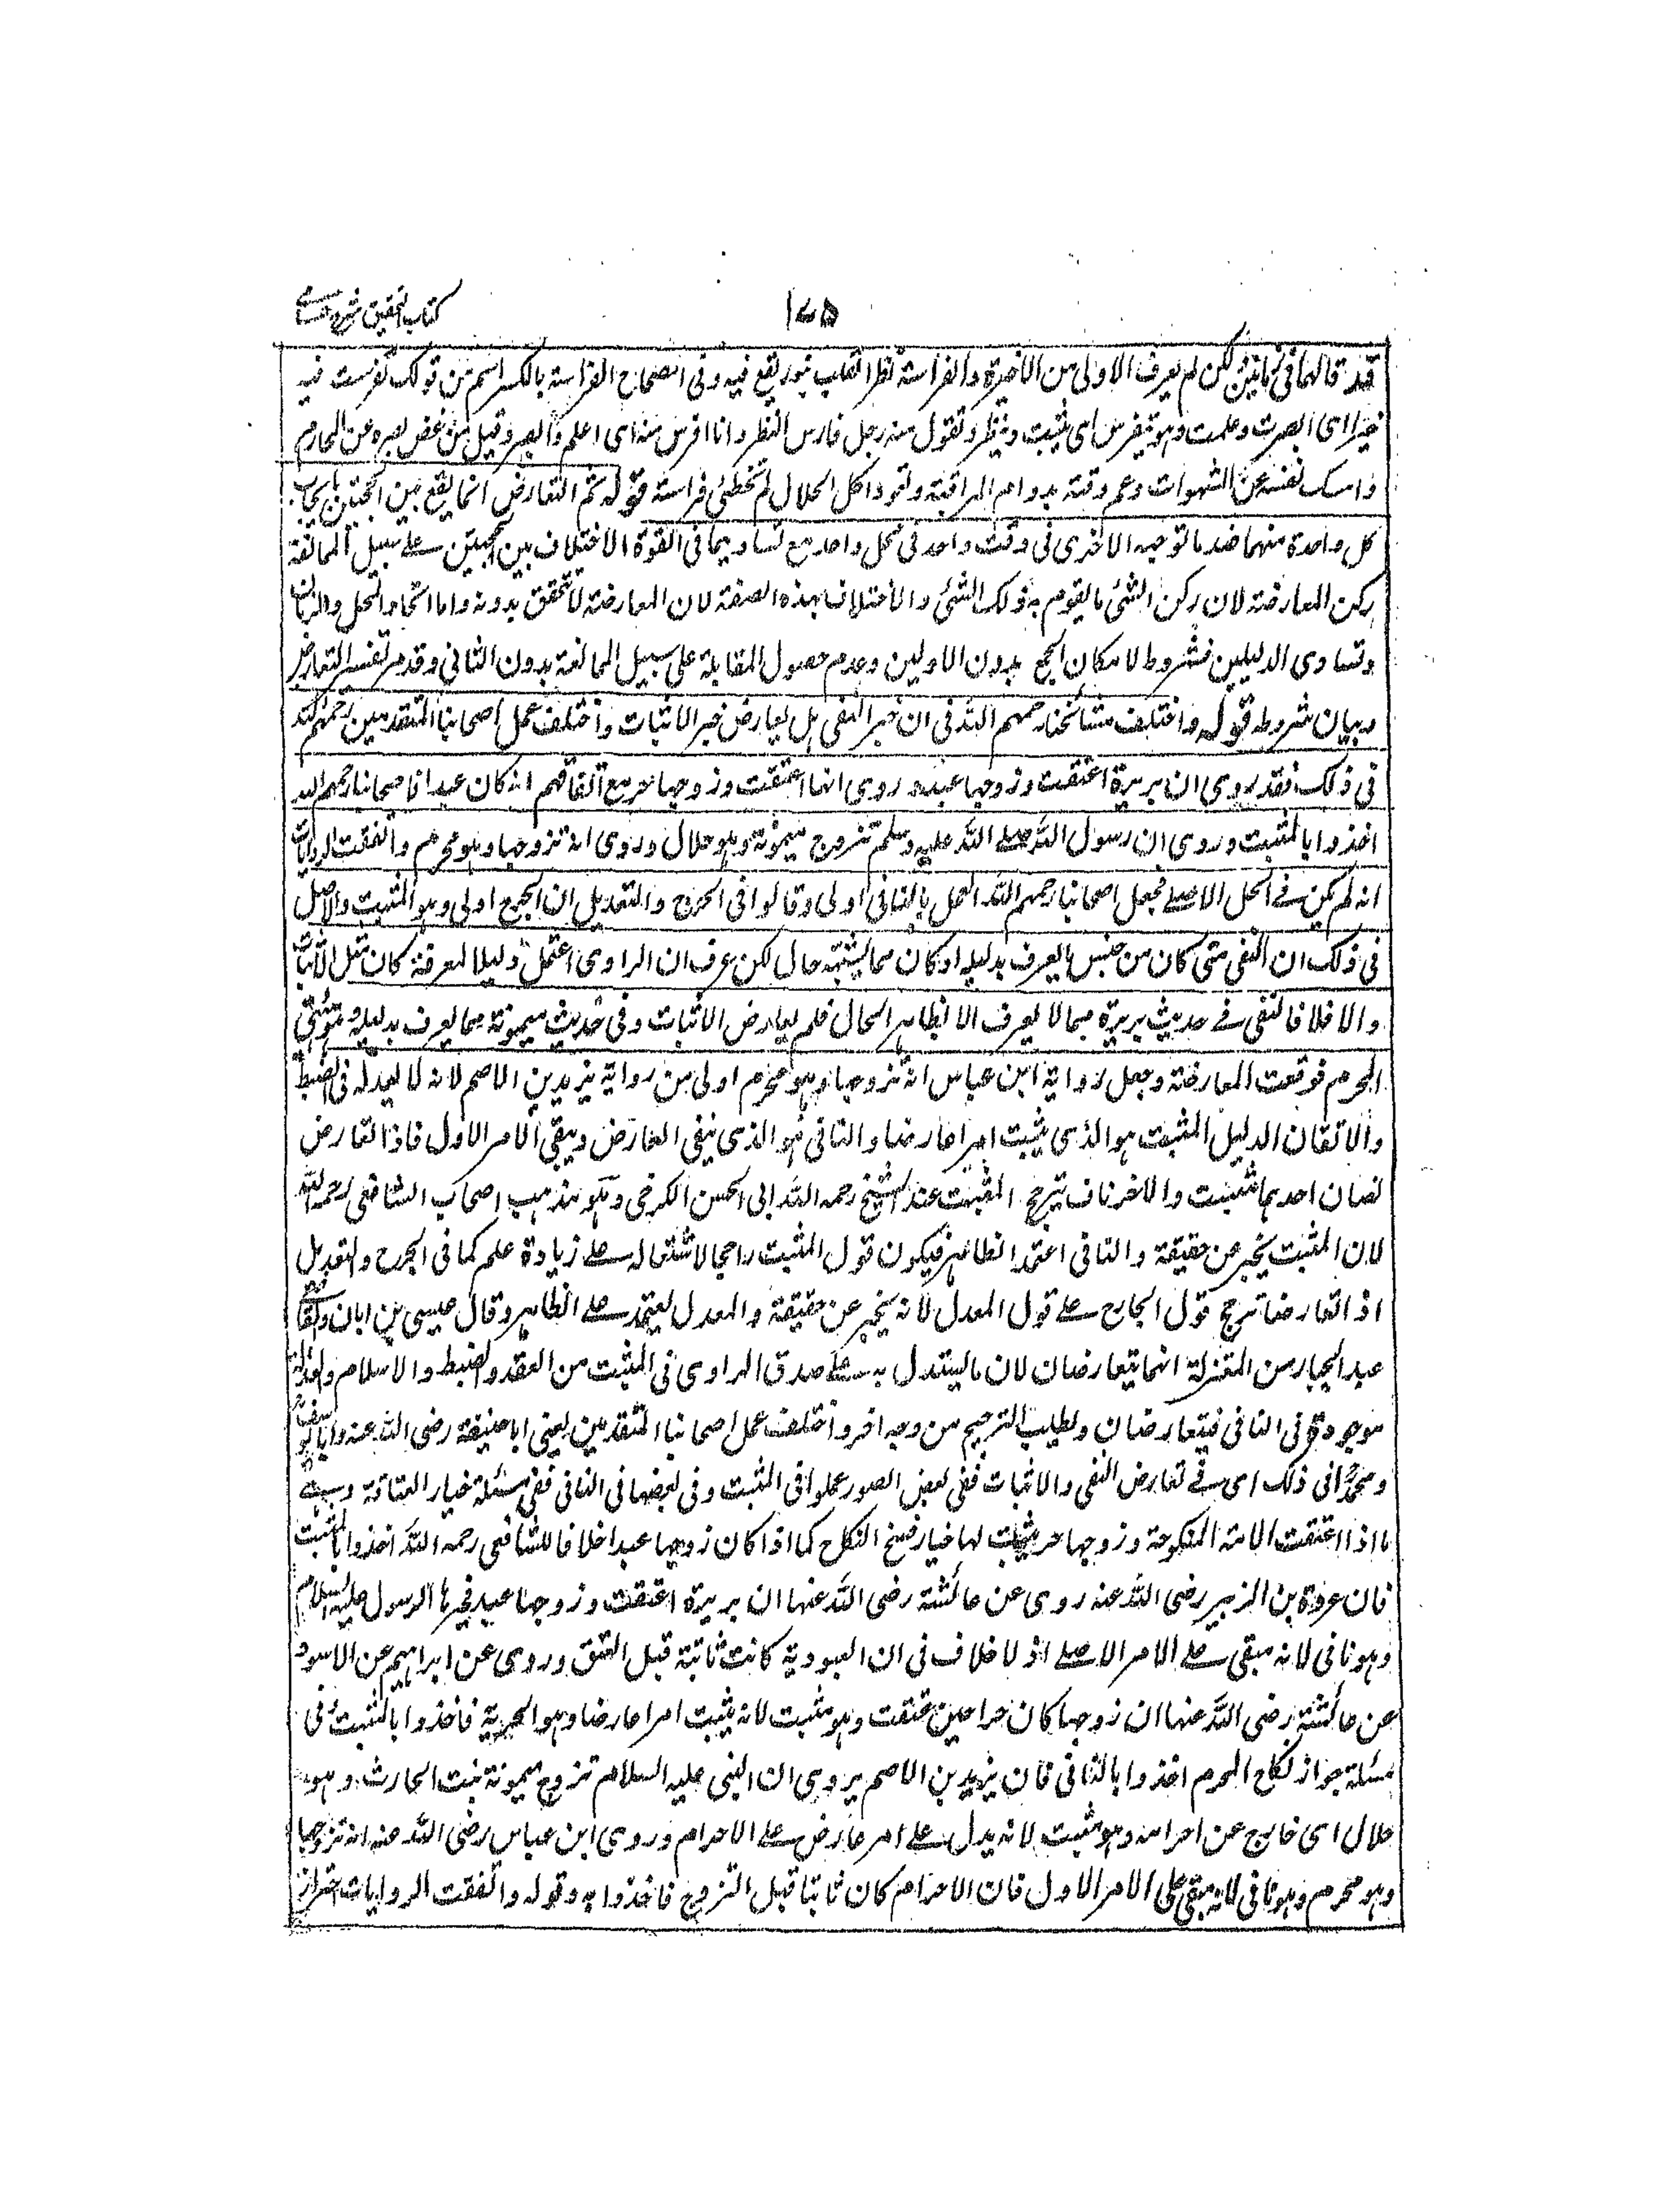 كتاب التحقيق شرح حسامى
١٧٥
قد قالهما فى زمانين لكن لم يعرف الاولى من الاخيرة والفراسة نظر القلب بنور يقع فيه وفى الصحاح الفراسة بالكسر اسم من قولك تفرست فيه
خيرا اى ابصرت وعلمت وهو يتفرس اى يتثبت وينظر وتقول منه رجل فارس النظر وانا افرس منه اى اعلم وابصر وقيل من غض بصره عن المحارم
وامسك نفسه عن الشهوات وعمر وقته بدوام المراقبة وتعود اكل الحلال لم تخطئ فراسته قوله ثم التعارض انما يقع بين الحجتين بايجاب
كل واحدة منهما ضد ما توجبه الاخرى فى وقت واحد فى محل واحد مع تساويهما فى القوة الاختلاف بين الحجتين على سبيل الممانعة
ركن المعارضة لان ركن الشئ ما يقوم به ذلك الشئ والاختلاف بهذه الصفة لان المعارضة لا تتحقق بدونه واما اتحاد المحل والزمان
وتساوى الدليلين فشروط لامكان الجمع بدون الاولين وعدم حصول المقابلة على سبيل الممانعة بدون الثانى وقد مر تفسير التعارض
وبيان شروطه قوله واختلف مشائخنا رحمهم الله فى ان خبر النفى هل يعارض خبر الاثبات واختلف عمل اصحابنا المتقدمين رحمهم الله
فى ذلك فقد روى ان بريرة اعتقت وزوجها عبد وروى انها اعتقت وزوجها حر مع اتفاقهم انه كان عبدا فاصحابنا رحمهم الله
اخذوا بالمثبت وروى ان رسول الله صلى الله عليه وسلم تزوج ميمونة وهو حلال وروى انه تزوجها وهو محرم واتفقت الروايات
انه لم يكن فى الحل الاصلى فجعل اصحابنا رحمهم الله العمل بالنافى اولى وقالوا فى الجرح والتعديل ان الجرح اولى وهو المثبت والاصل
فى ذلك ان النفى متى كان من جنس ما يعرف بدليله او كان مما يشتبه حاله لكن عرف ان الراوى اعتمد دليلا لمعرفة كان مثل الاثبات
والا فلا فالنفى فى حديث بريرة مما لا يعرف الا بظاهر الحال فلم يعارض الاثبات وفى حديث ميمونة مما يعرف بدليله وهو هيئة
المحرم فوقعت المعارضة وجعل رواية ابن عباس انه تزوجها وهو محرم اولى من رواية يزيد بن الاصم لانه لا يعدله فى الضبط
والاتقان الدليل المثبت هو الذى يثبت امرا عارضا والنافى هو الذى ينفى العارض ويبقى الامر الاول فاذا تعارض
نصان احدهما مثبت والاخر ناف يترجح المثبت عند الشيخ رحمه الله ابى الحسن الكرخى وهو مذهب اصحاب الشافعى رحمه الله
لان المثبت يخبر عن حقيقة والنافى اعتمد الظاهر فيكون قول المثبت راجحا لاشتماله على زيادة علم كما فى الجرح والتعديل
اذا تعارضا ترجح قول الجارح على قول المعدل لانه يخبر عن حقيقة والمعدل يعتمد على الظاهر وقال عيسى بن ابان والقاضى
عبد الجبار من المعتزلة انهما يتعارضان لان ما يستدل به على صدق الراوى فى المثبت من العقد والضبط والاسلام والعدالة
موجود فى النافى فيتعارضان ويطلب الترجيح من وجه اخر واختلف عمل اصحابنا المتقدمين يعنى ابا حنيفة رضى الله عنه وابا يوسف
ومحمدا فى ذلك اى فى تعارض النفى والاثبات ففى بعض الصور عملوا فى المثبت وفى بعضها فى النافى ففى مسئلة خيار العتاقة وهى
ما اذا اعتقت الامة المنكوحة وزوجها حر يثبت لها خيار فسخ النكاح كما اذا كان زوجها عبدا خلافا للشافعى رحمه الله اخذوا بالمثبت
فان عروة بن الزبير رضى الله عنه روى عن عائشة رضى الله عنها ان بريرة اعتقت وزوجها عبد فخيرها الرسول عليه السلام
وهو نافى لانه مبقى على الامر الاصلى اذ لا خلاف فى ان العبودية كانت ثابتة قبل العتق وروى عن ابراهيم عن الاسود
عن عائشة رضى الله عنها ان زوجها كان حرا حين عتقت وهو مثبت لانه يثبت امرا عارضا وهو الحرية فاخذوا بالمثبت فى
مسئلة جواز نكاح المحرم اخذوا بالنافى فان يزيد بن الاصم يروى ان النبى عليه السلام تزوج ميمونة بنت الحارث وهو
حلال اى خارج عن احرامه وهو مثبت لانه يدل على امر عارض على الاحرام وروى ابن عباس رضى الله عنه انه تزوجها
وهو محرم وهو نافى لانه مبقى على الامر الاول فان الاحرام كان ثابتا قبل التزوج فاخذوا به وقوله واتفقت الروايات احتراز